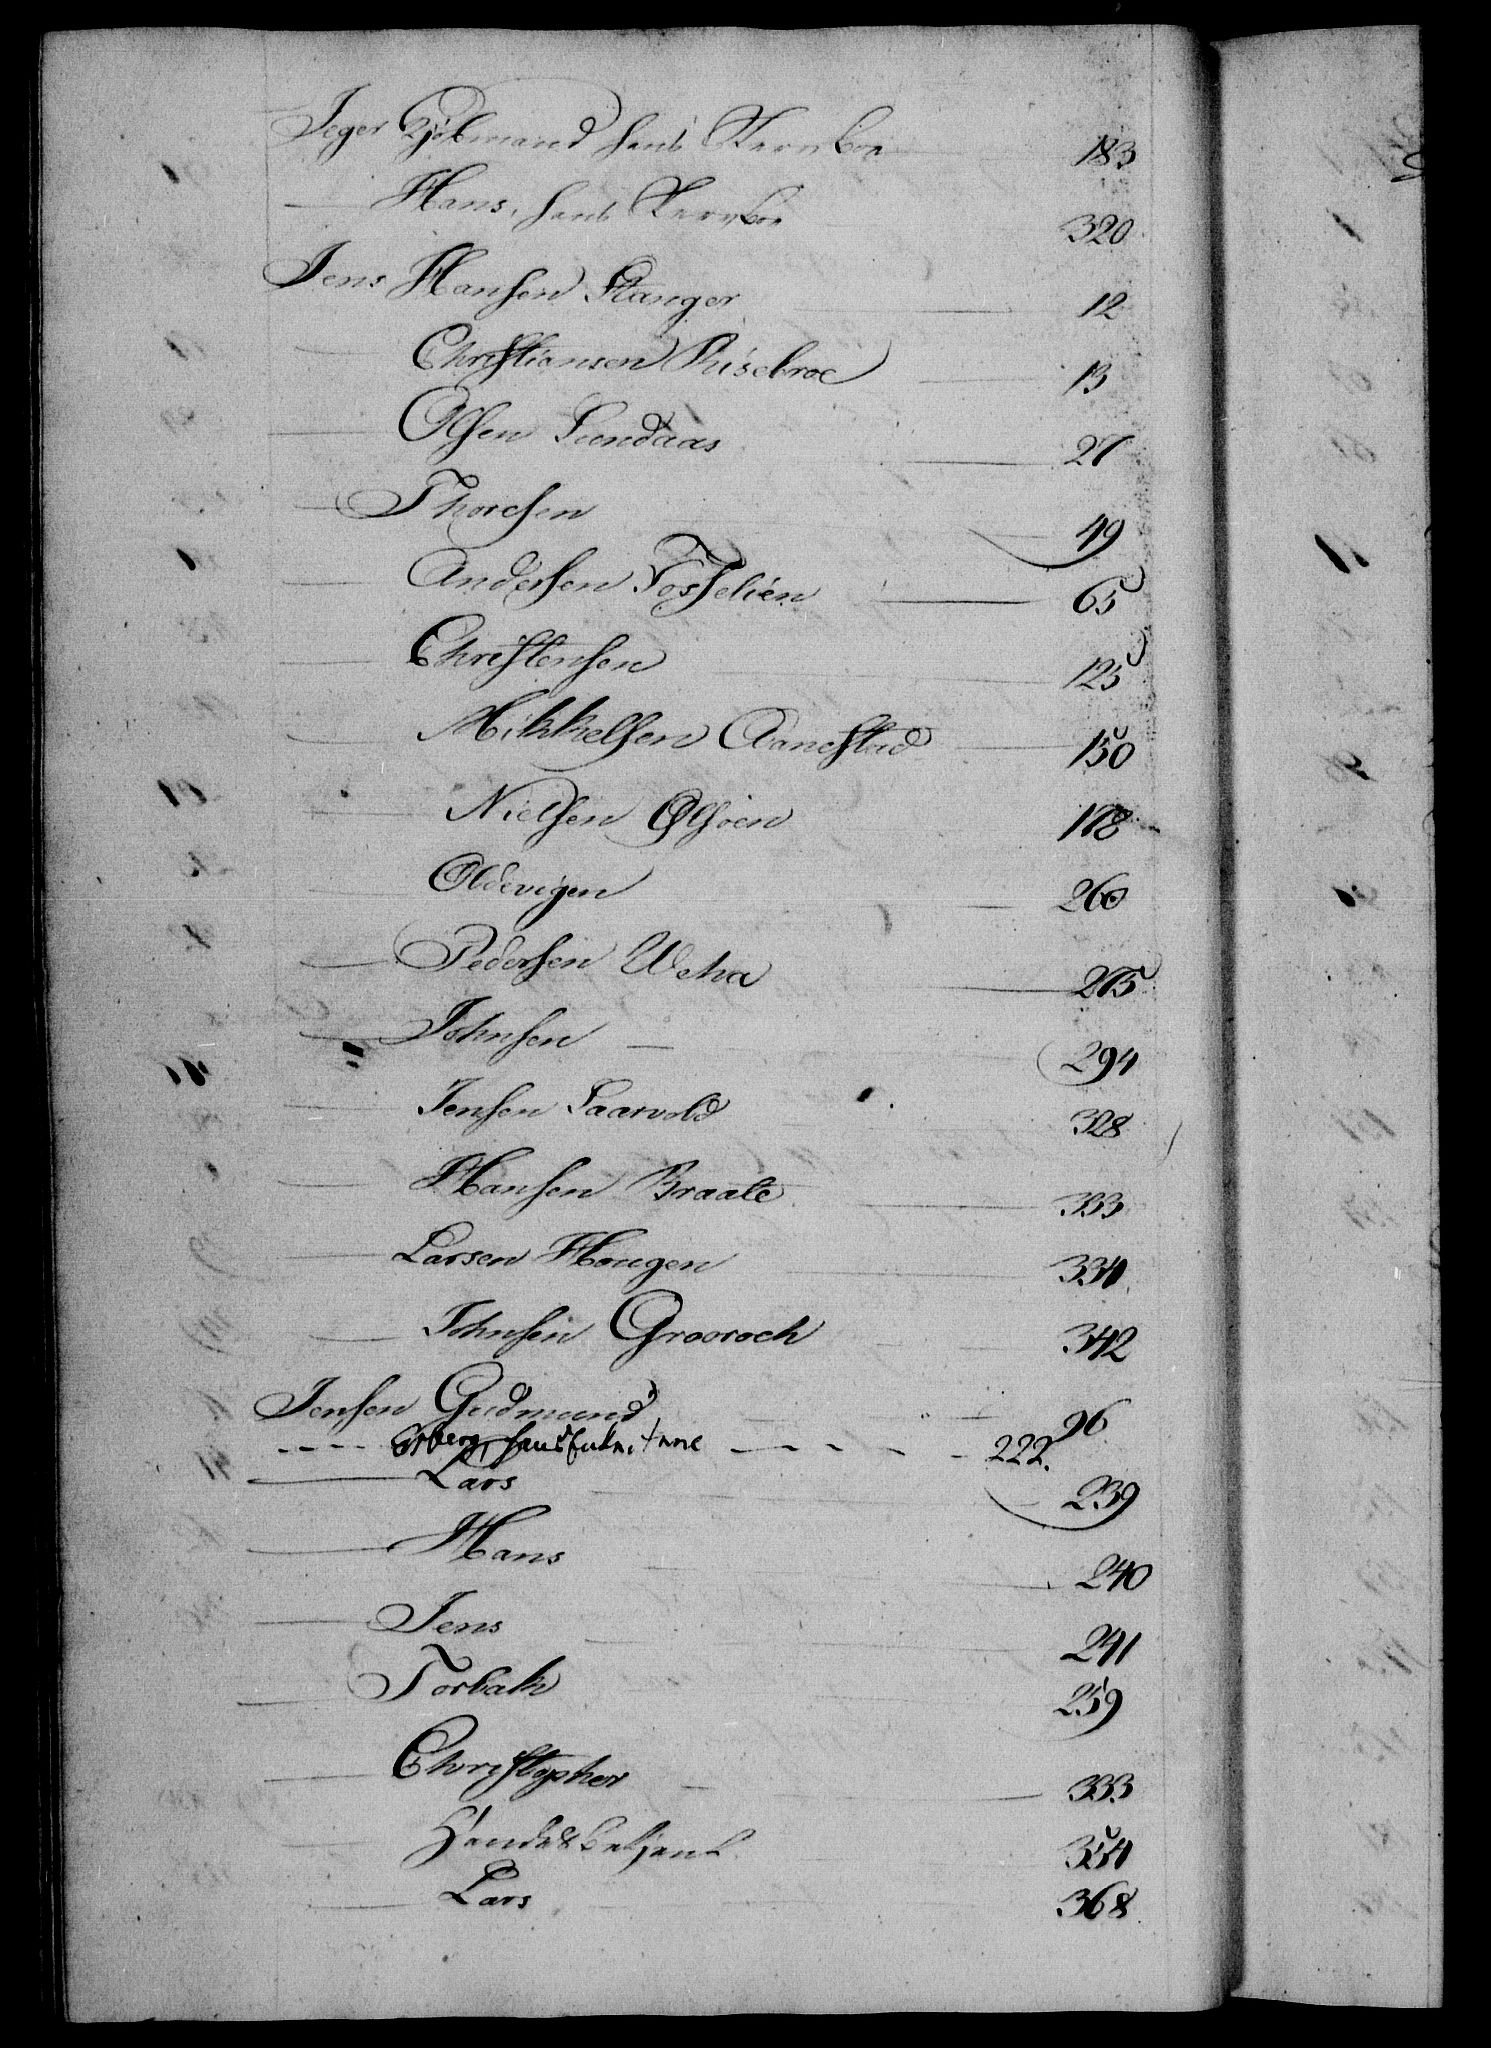 Jeger Kjøbmand hans Stervboe 183
— Hans, hans Stervboe 320
Jens Hansen Stanger 12
— Christiansen Risebroe 13
— Olsen Sundaas 27
— Thoresen 49
— Andersen Fosselien 65
— Christensen 125
— Mikkelsen Aanestad 150
— Nielsen Øhlsøen 178
— Oldevigen 260
— Pedersen Weha 275
— Johnsen — 294
— Jensen Saarvold 328
— Hansen Braate 333
— Larsen Hougen 334
— Johnsen Grooroch 342
Jensen Gudmund 96
— Esberg, hans 222.
— Lars 239
— Hans 240
— Jens 241
— Torbak 259
— Christopher 333
— 354
— Lars 368